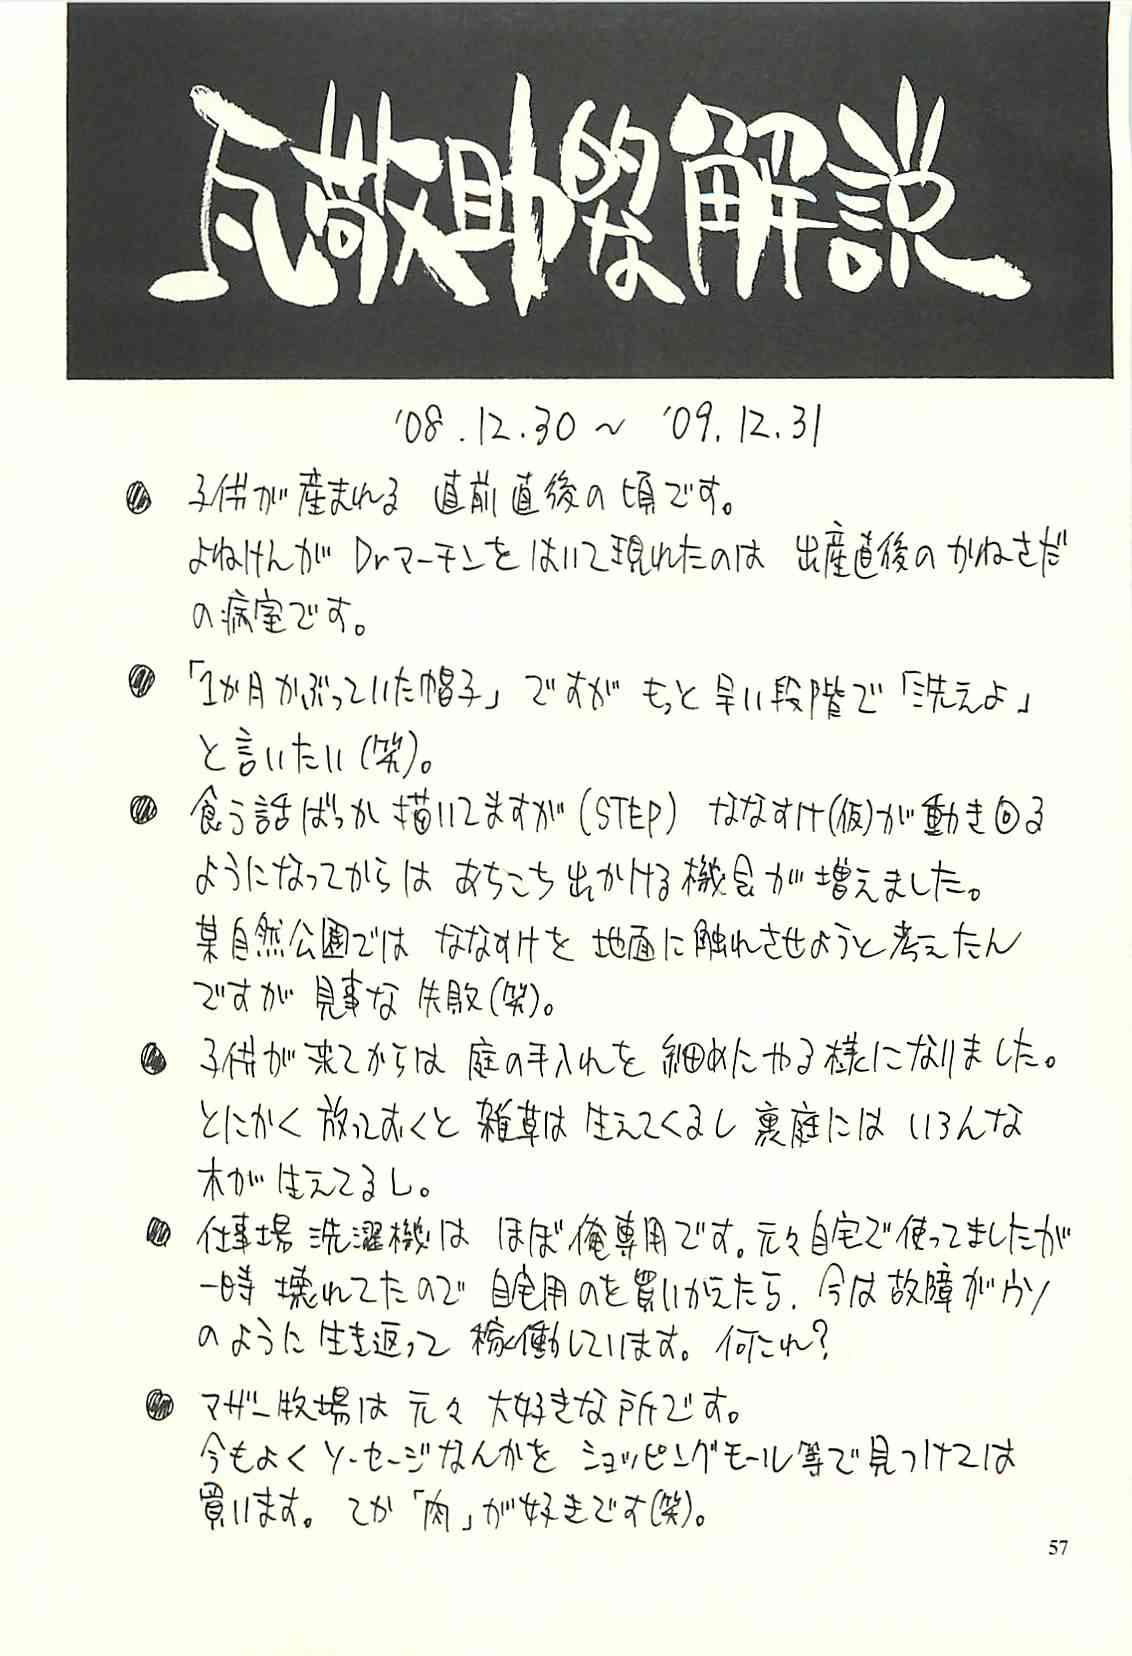 瓦敬助的な解説
'08.12.30〜'09.12.31
● 子供が産まれる 直前直後の頃です。
よねけんが Drマーチンをはいて現れたのは 出産直後のかねさだ
の病室です。
● 「1か月かぶっていた帽子」ですが もっと早い段階で「洗えよ」
と言いたい(笑)。
● 食う話ばっか描いてますが(STEP) ななすけ(仮)が動き回る
ようになってからは あちこち出かける機会が増えました。
某自然公園では ななすけを 地面に触れさせようと考えたん
ですが 見事な失敗(笑)。
● 子供が来てからは 庭の手入れを 細めにやる様になりました。
とにかく 放っておくと 雑草は生えてくるし 裏庭には いろんな
木が生えてるし。
● 仕事場洗濯機は ほぼ俺専用です。元々自宅で使ってましたが
一時壊れてたので 自宅用のを買いかえたら、今は故障がウソ
のように生き返って 稼働しています。何これ?
● マザー牧場は元々 大好きな所です。
今もよくソーセージなんかを ショッピングモール等で見つけては
買います。てか「肉」が好きです(笑)。
57